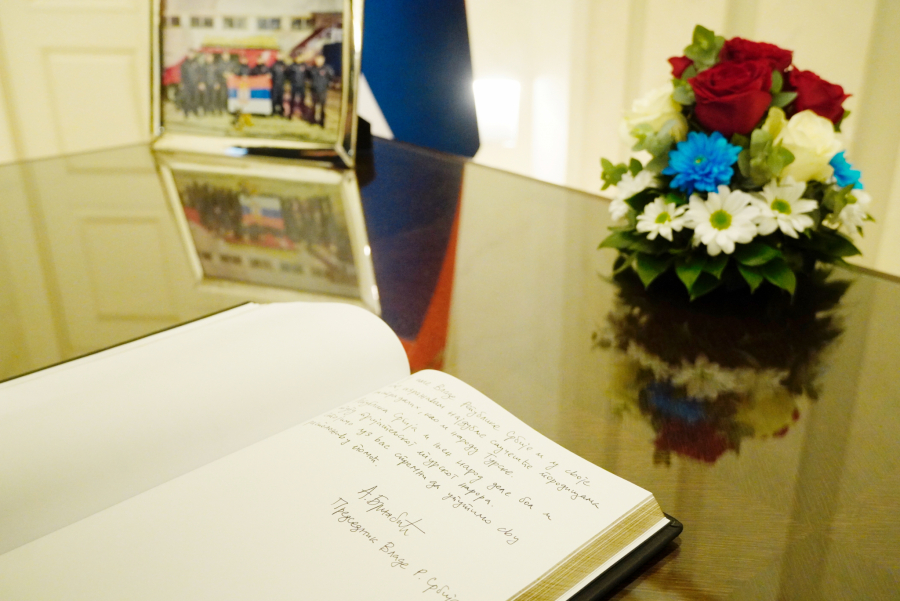 Владе Републике Србије и у своје
најдубље саучешће породицама
као и народу Турске.
Србија и њен народ деле бол и
пријатељског турског народа.
уз вас спремни да упутимо сву
помоћ
А.Брнабић
Председник Владе Р. Србије